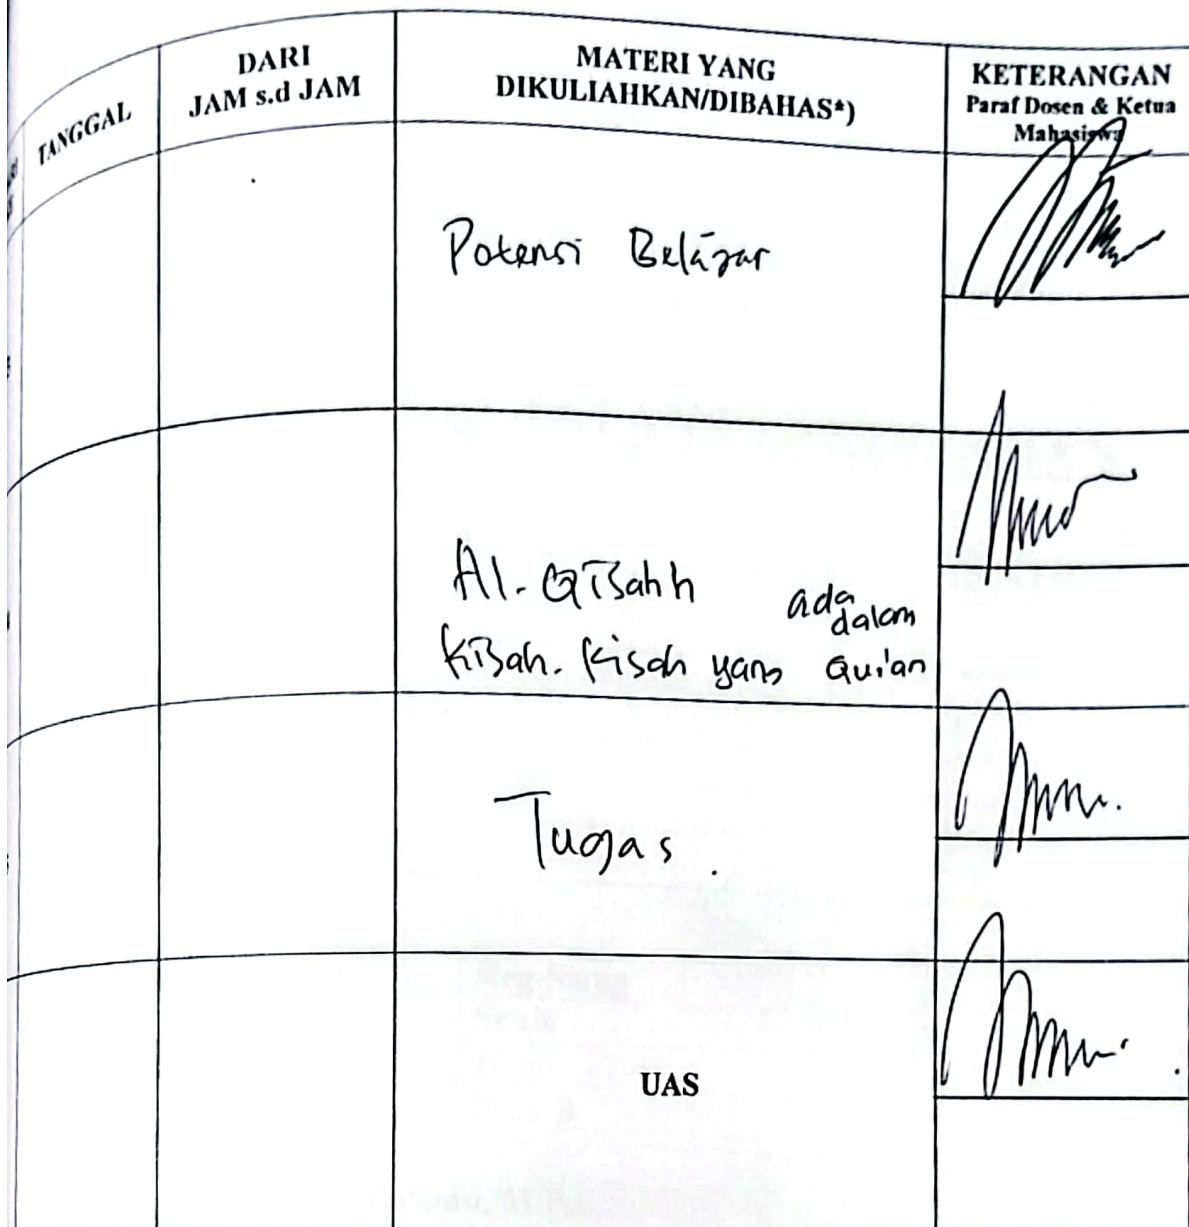 TANGGAL
DARI
JAM s.d JAM
MATERI YANG
DIKULIAHKAN/DIBAHAS*)
KETERANGAN
Paraf Dosen & Ketua
Mahasiswa
Potensi Belajar
Al-Qisahh
Kisah-Kisah yang ada dalam Qur'an
Tugas.
UAS